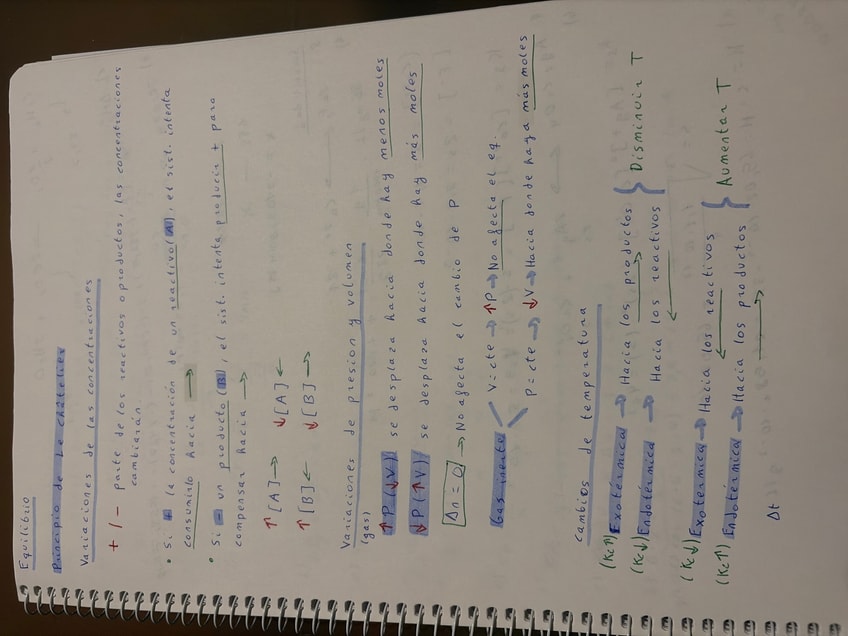 Equilibrio
Principio de Le Châtelier
Variaciones de las concentraciones
+/- parte de los reactivos o productos, las concentraciones
cambiarán.
• Si + la concentración de un reactivo (A), el sist. intenta
consumirlo hacia →
• Si - un producto (B), el sist. intenta producir + para
compensar hacia →
↑[A]→ ↓[A]←
↑[B]← ↓[B]→
Variaciones de presion y volumen
(gas)
↑P(↓V) se desplaza hacia donde hay menos moles
↓P(↑V) se desplaza hacia donde hay más moles
Δn = 0 → No afecta el cambio de P
Gas inerte
V=cte → ↑P → No afecta el eq.
P=cte → ↓V → Hacia donde haya más moles
Cambios de temperatura
(Kc↑) Exotérmica → Hacia los productos } Disminuir T
(Kc↓) Endotérmica → Hacia los reactivos
(Kc↓) Exotérmica → Hacia los reactivos } Aumentar T
(Kc↑) Endotérmica → Hacia los productos
Δt